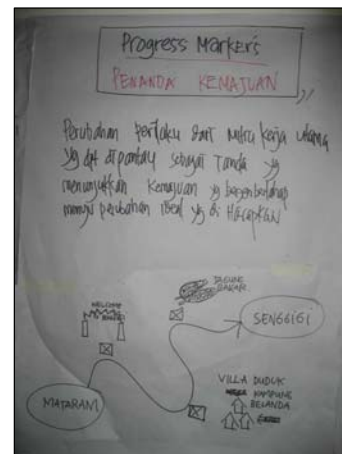 Progress Markers
PENANDA KEMAJUAN
Perubahan Perilaku dari mitra kerja utama
yg dpt dipantau sebagai Tanda yg
menunjukkan Kemajuan yg bertahap
menuju perubahan ideal yg di Harapkan
WELCOME
JAGUNG
BAKAR
SENGGIGI
MATARAM
VILLA DUDUK
KAMPUNG
BELANDA